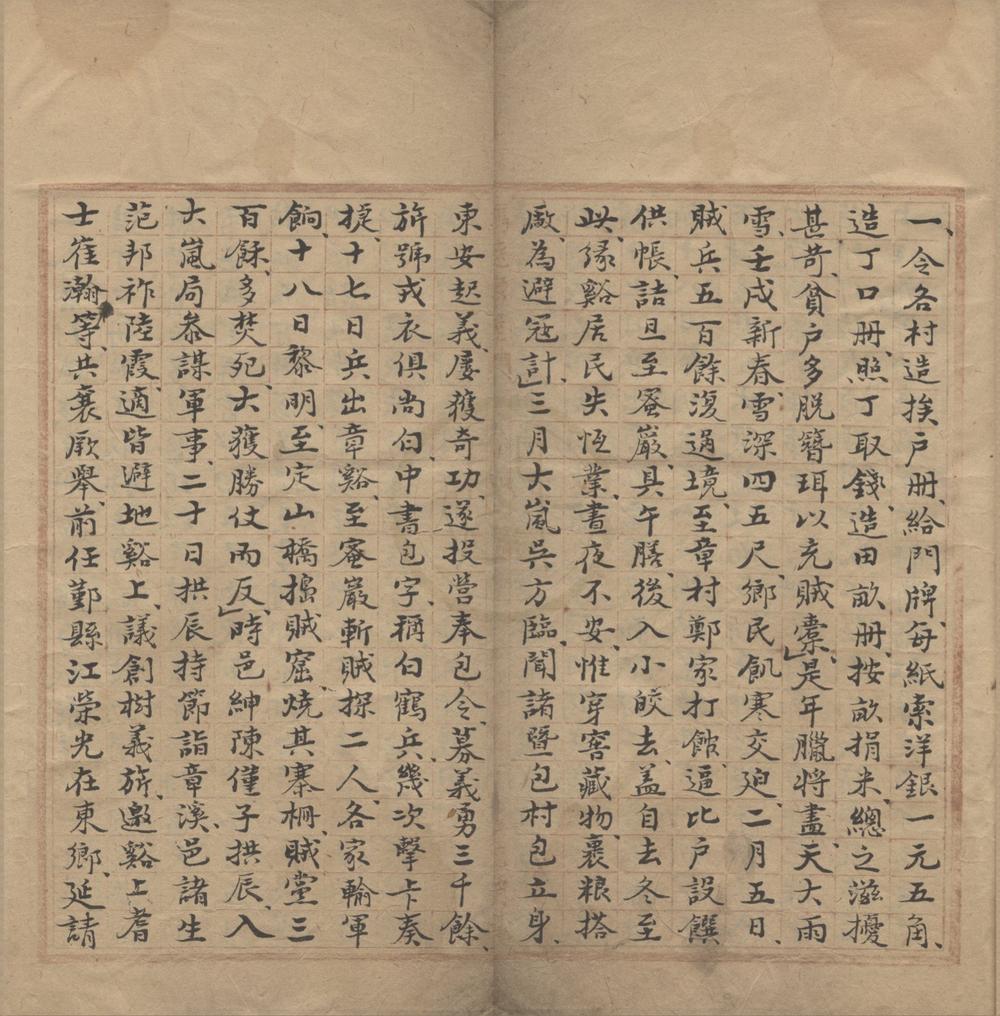 一、令各村造挨户册、給門牌、每紙索洋銀一元五角、
造丁口册、照丁取錢、造田畝册、按畝捐米、總之滋擾
甚苛、貧户多脱簪珥以充賊橐、是年臘將盡、天大雨
雪、壬戌新春、雪深四五尺、鄉民飢寒交迫、二月五日、
賊兵五百餘復過境、至章村鄭家打館、逼比户設饌
供帳、詰旦至蜜巖、具午膳、後入小皎去、盖自去冬至
此、緣谿居民失恆業、晝夜不安、惟穿窖藏物、裹粮搭
廠、為避冦計、三月大嵐吳方臨、聞諸暨包村包立身、
東安起義、屢獲奇功、遂投營奉包令、募義勇三千餘、
旂號戎衣俱尚白、中書包字、稱白鶴兵、幾次擊卡奏
捷、十七日兵出章谿、至蜜巖斬賊探二人、各家輸軍
餉、十八日黎明、至定山橋搗賊窟、燒其寨柵、賊黨三
百餘、多焚死、大獲勝仗而反、時邑紳陳僅子拱辰、入
大嵐局叅謀軍事、二十日拱辰持節詣章溪、邑諸生
范邦祚陸霞、適皆避地谿上、議創樹義旂、邀谿上耆
士崔瀚等、共襄厥舉、前任鄞縣江榮光在東鄉、延請